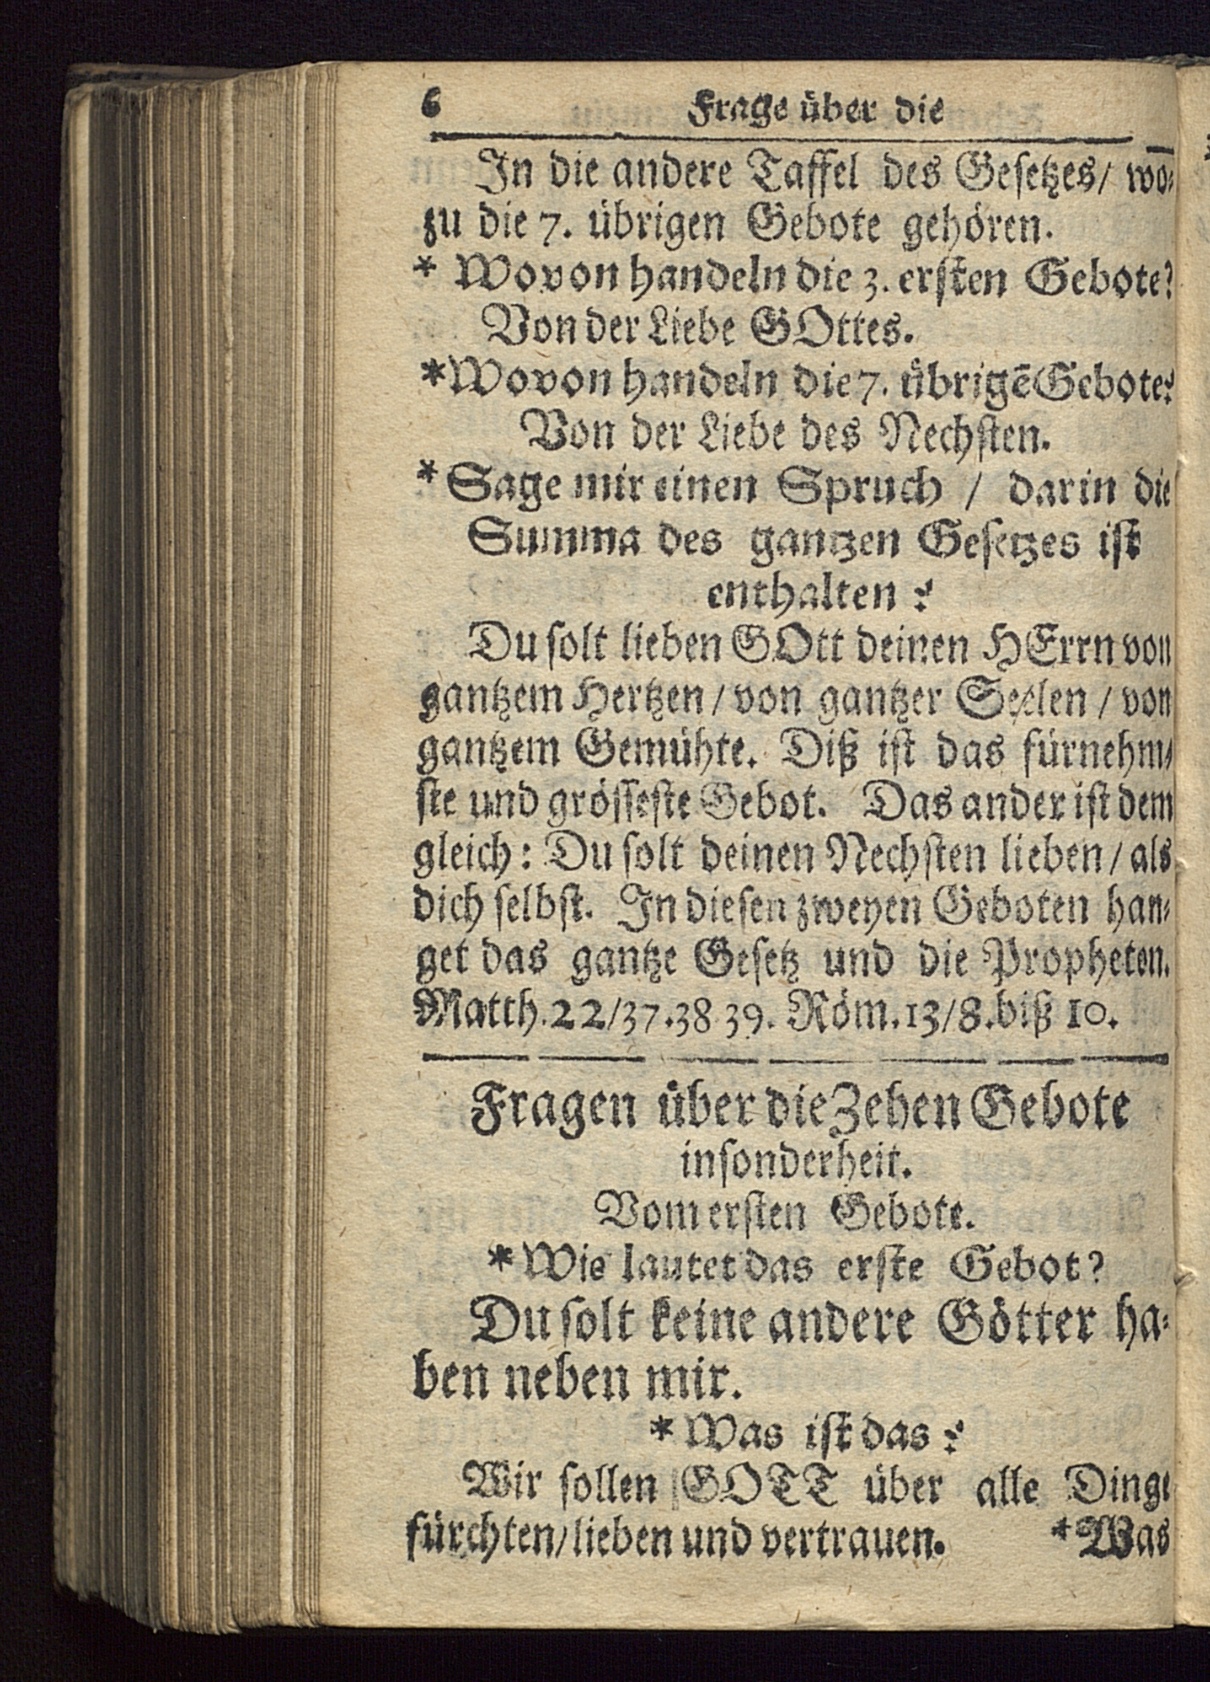 6 Frage über die
In die andere Taffel des Gesetzes/ wo⸗
zu die 7. übrigen Gebote gehören.
* Wovon handeln die 3. ersten Gebote?
Von der Liebe GOttes.
*Wovon handeln die 7. übrigē Gebote?
Von der Liebe des Nechsten.
* Sage mir einen Spruch / darin die
Summa des gantzen Gesetzes ist
enthalten?
Du solt lieben GOtt deinen HErrn von
gantzem Hertzen / von gantzer Seelen / von
gantzem Gemühte. Diß ist das fürnehm⸗
ste und grösseste Gebot. Das ander ist dem
gleich: Du solt deinen Nechsten lieben / als
dich selbst. In diesen zweyen Geboten han⸗
get das gantze Gesetz und die Propheten.
Matth. 22/37.38 39. Röm. 13/8. biß 10.
Fragen über die Zehen Gebote
insonderheit.
Vom ersten Gebote.
* Wie lautet das erste Gebot?
Du solt keine andere Götter ha⸗
ben neben mir.
* Was ist das?
Wir sollen GOTT über alle Dinge
fürchten/ lieben und vertrauen. *Was